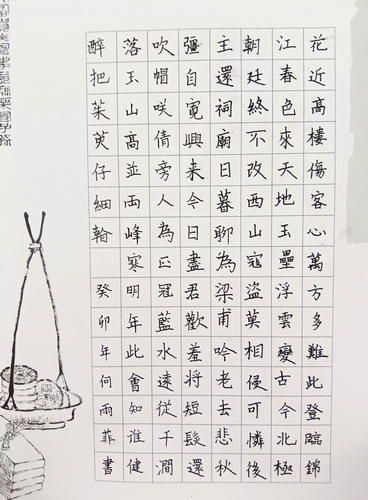 花近高樓傷客心萬方多難此登臨錦
江春色來天地玉壘浮雲變古今北極
朝廷終不改西山寇盜莫相侵可憐後
主還祠廟日暮聊為梁甫吟老去悲秋
彊自寬興来今日盡君歡羞將短髮還
吹帽咲倩旁人為正冠藍水遠從千澗
落玉山高並兩峰寒明年此會知誰健
醉把茱萸仔細 癸卯年何雨菲書